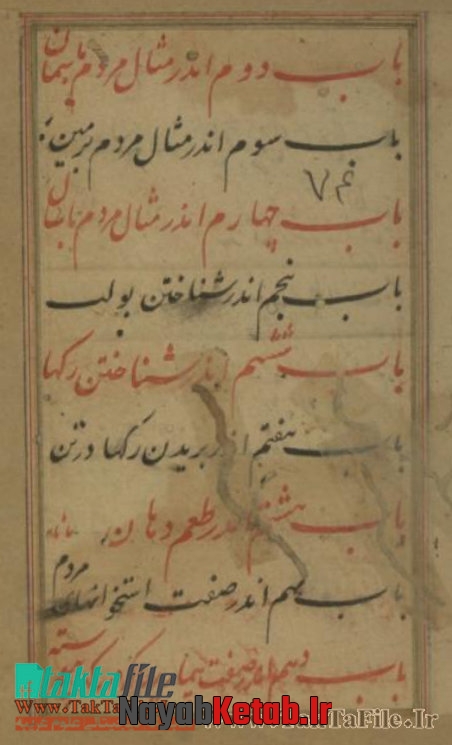 باب دوم اندر مثال مردم باسمان
باب سوم اندر مثال مردم بزمین
باب چهارم اندر مثال مردم بسال
باب پنجم اندر شناختن بولت
باب ششم اندر شناختن رکها
باب هفتم اندر بریدن رکها در تن
باب هشتم اندر طعم دهان
باب نهم اندر صفت استخوانهای مردم
باب دهم اندر صفت
taktafile
Www.TakTa
NayabKetab.Ir
www.TakTaFile.Ir